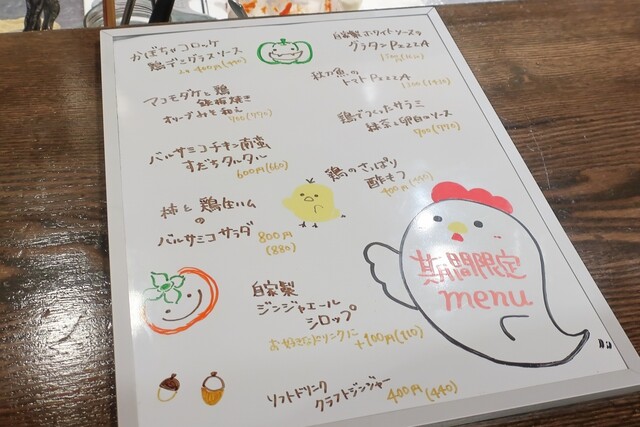 かぼちゃコロッケ
鶏デミグラスソース
マコモダケと鶏
鉄板焼き
オリーブみそ和え
700(770)
バルサミコチキン南蛮
すだちタルタル
600円(660)
柿と鶏生ハム
の
バルサミコサラダ
800円
(880)
自家製ホワイトソースの
グラタンPIZZA
秋刀魚の
トマトPIZZA
鶏でつくったサラミ
緑茶と卵白のソース
700(770)
鶏のさっぱり
酢もつ
期間限定
menu
自家製
ジンジャエール
シロップ
お好きなドリンクに
+100円(110)
ソフトドリンク
クラフトジンジャー
400円(440)